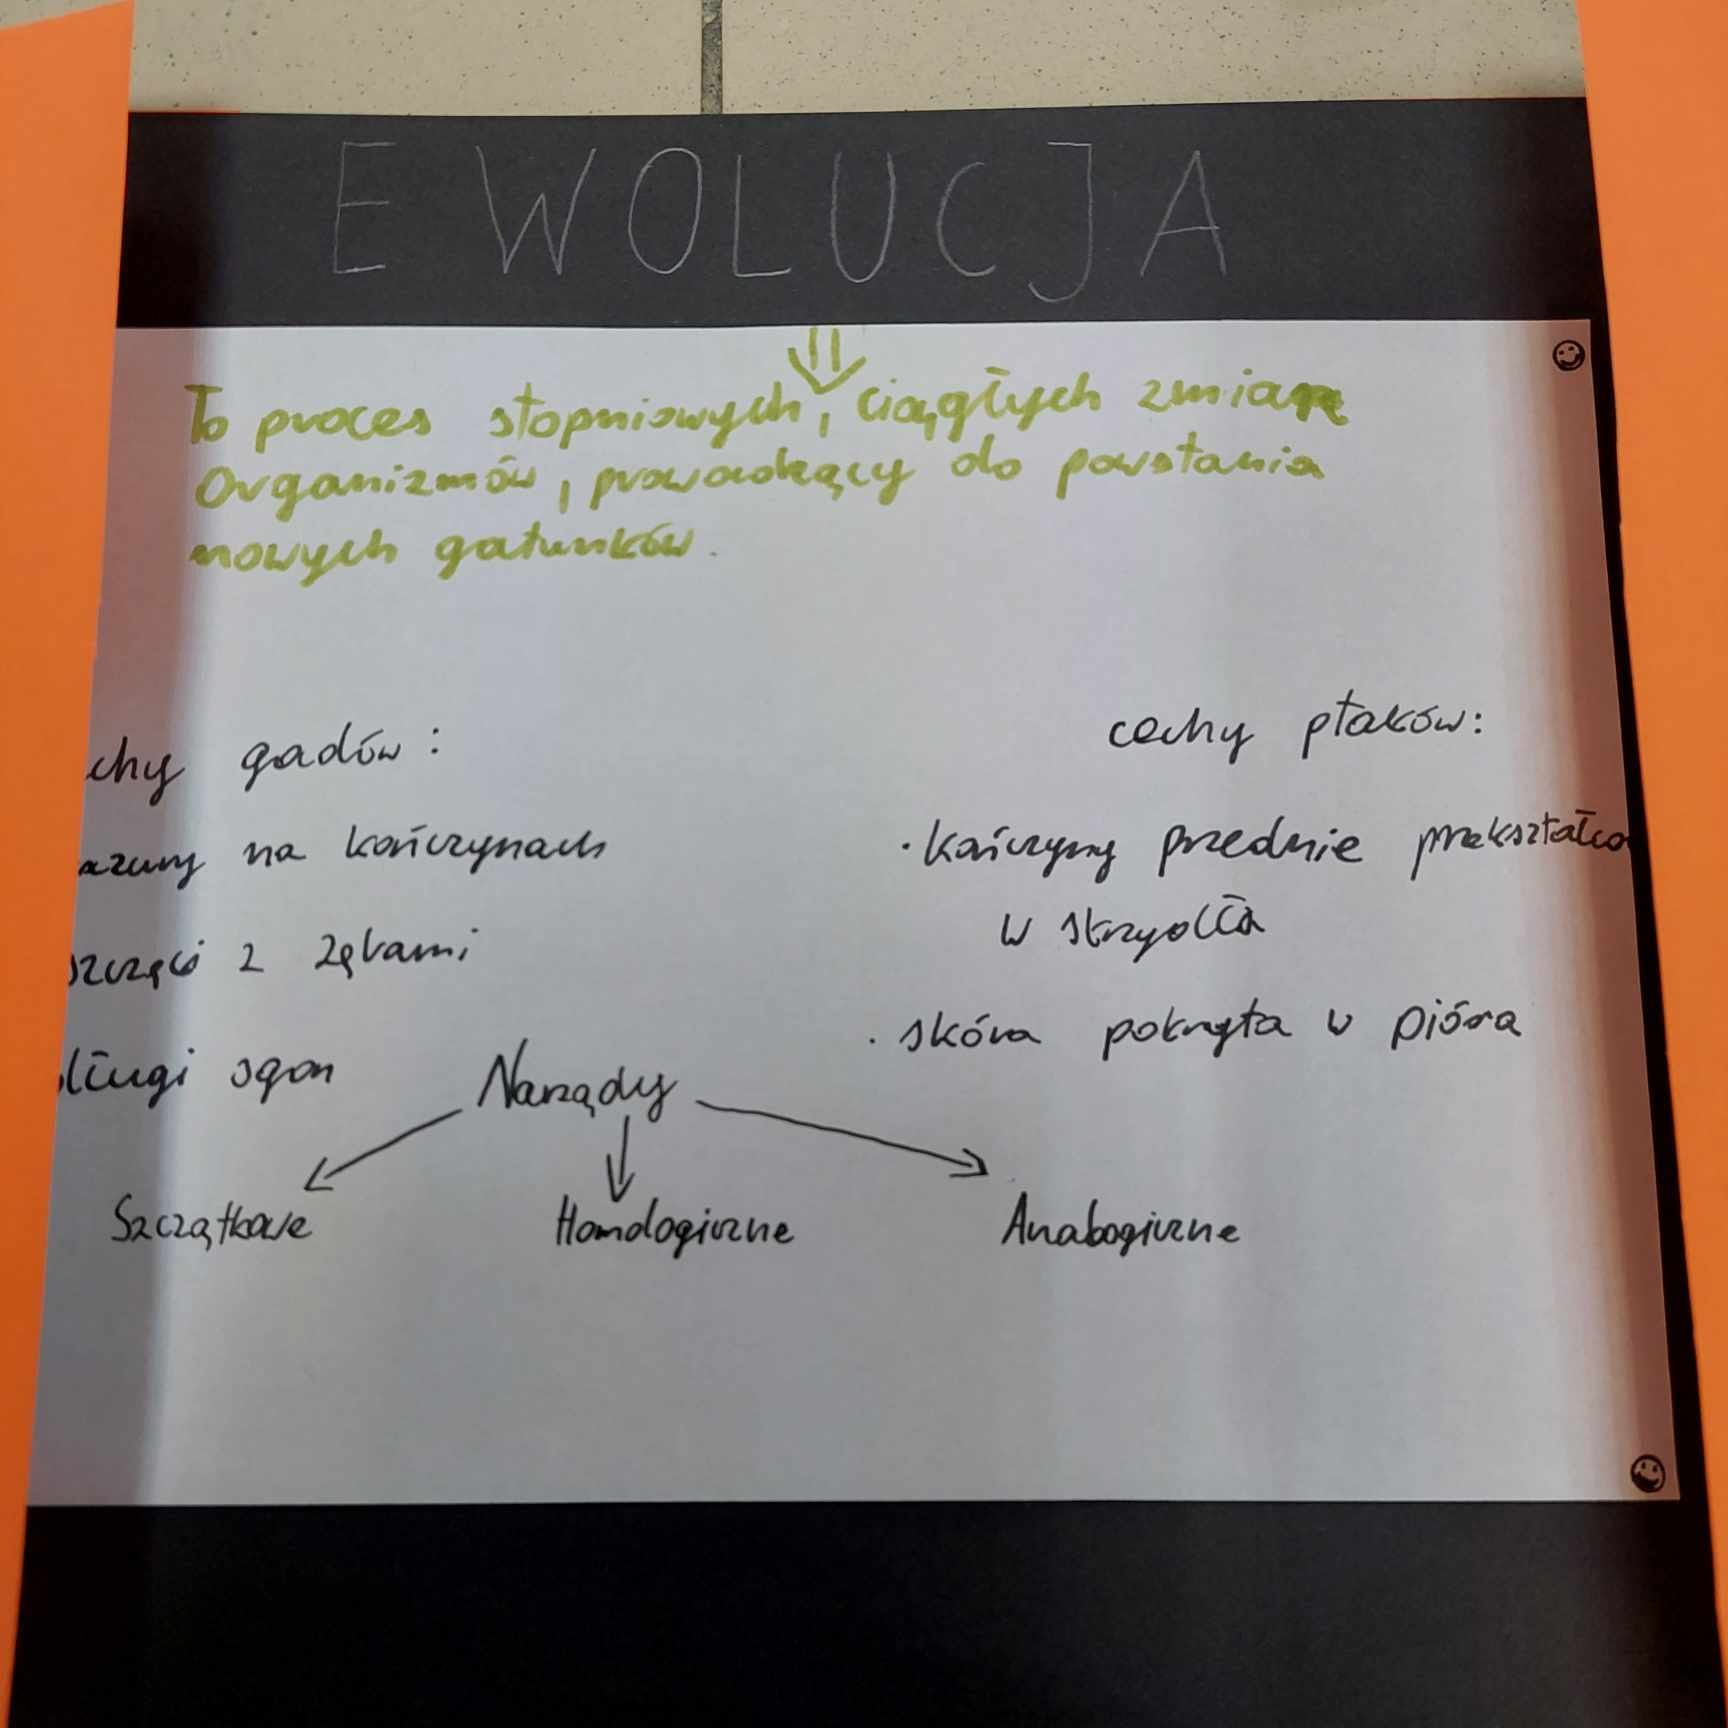 EWOLUCJA
To proces stopniowych, ciągłych zmian
Organizmów, prowadzący do powstania
nowych gatunków.
chy gadów:
azury na kończynach
szczęki z zębami
długi ogon
cechy ptaków:
· kończyny przednie przekształco
w skrzydła
· skóra pokryta w pióra
Narządy
Szczątkowe Homologiczne Analogiczne